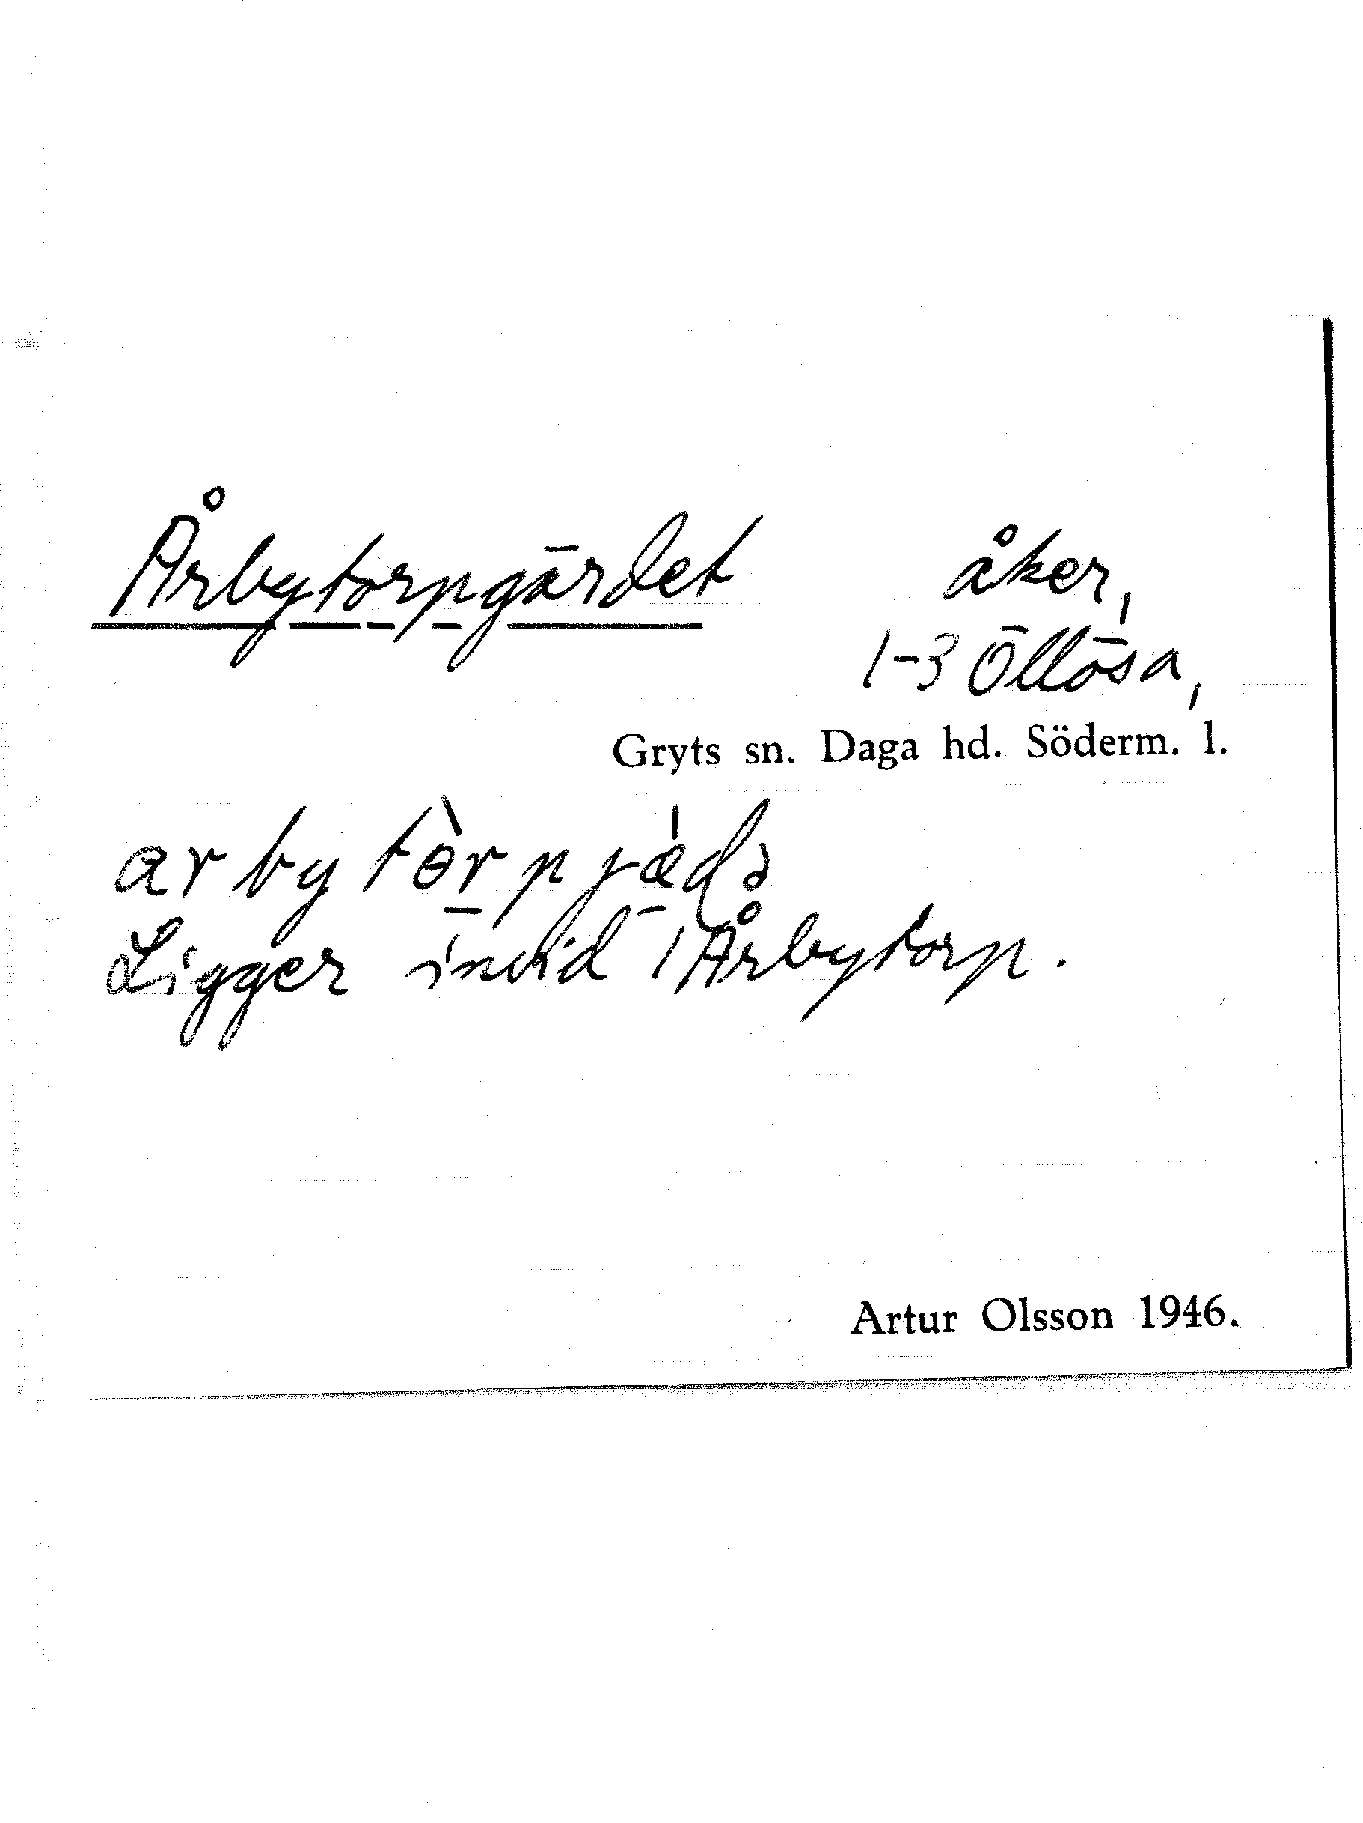 Årbytorpgärdet åker,
1-3 Öllösa,
Gryts sn. Daga hd. Söderm. l.
Ligger invid /Årbytorp.
Artur Olsson 1946.